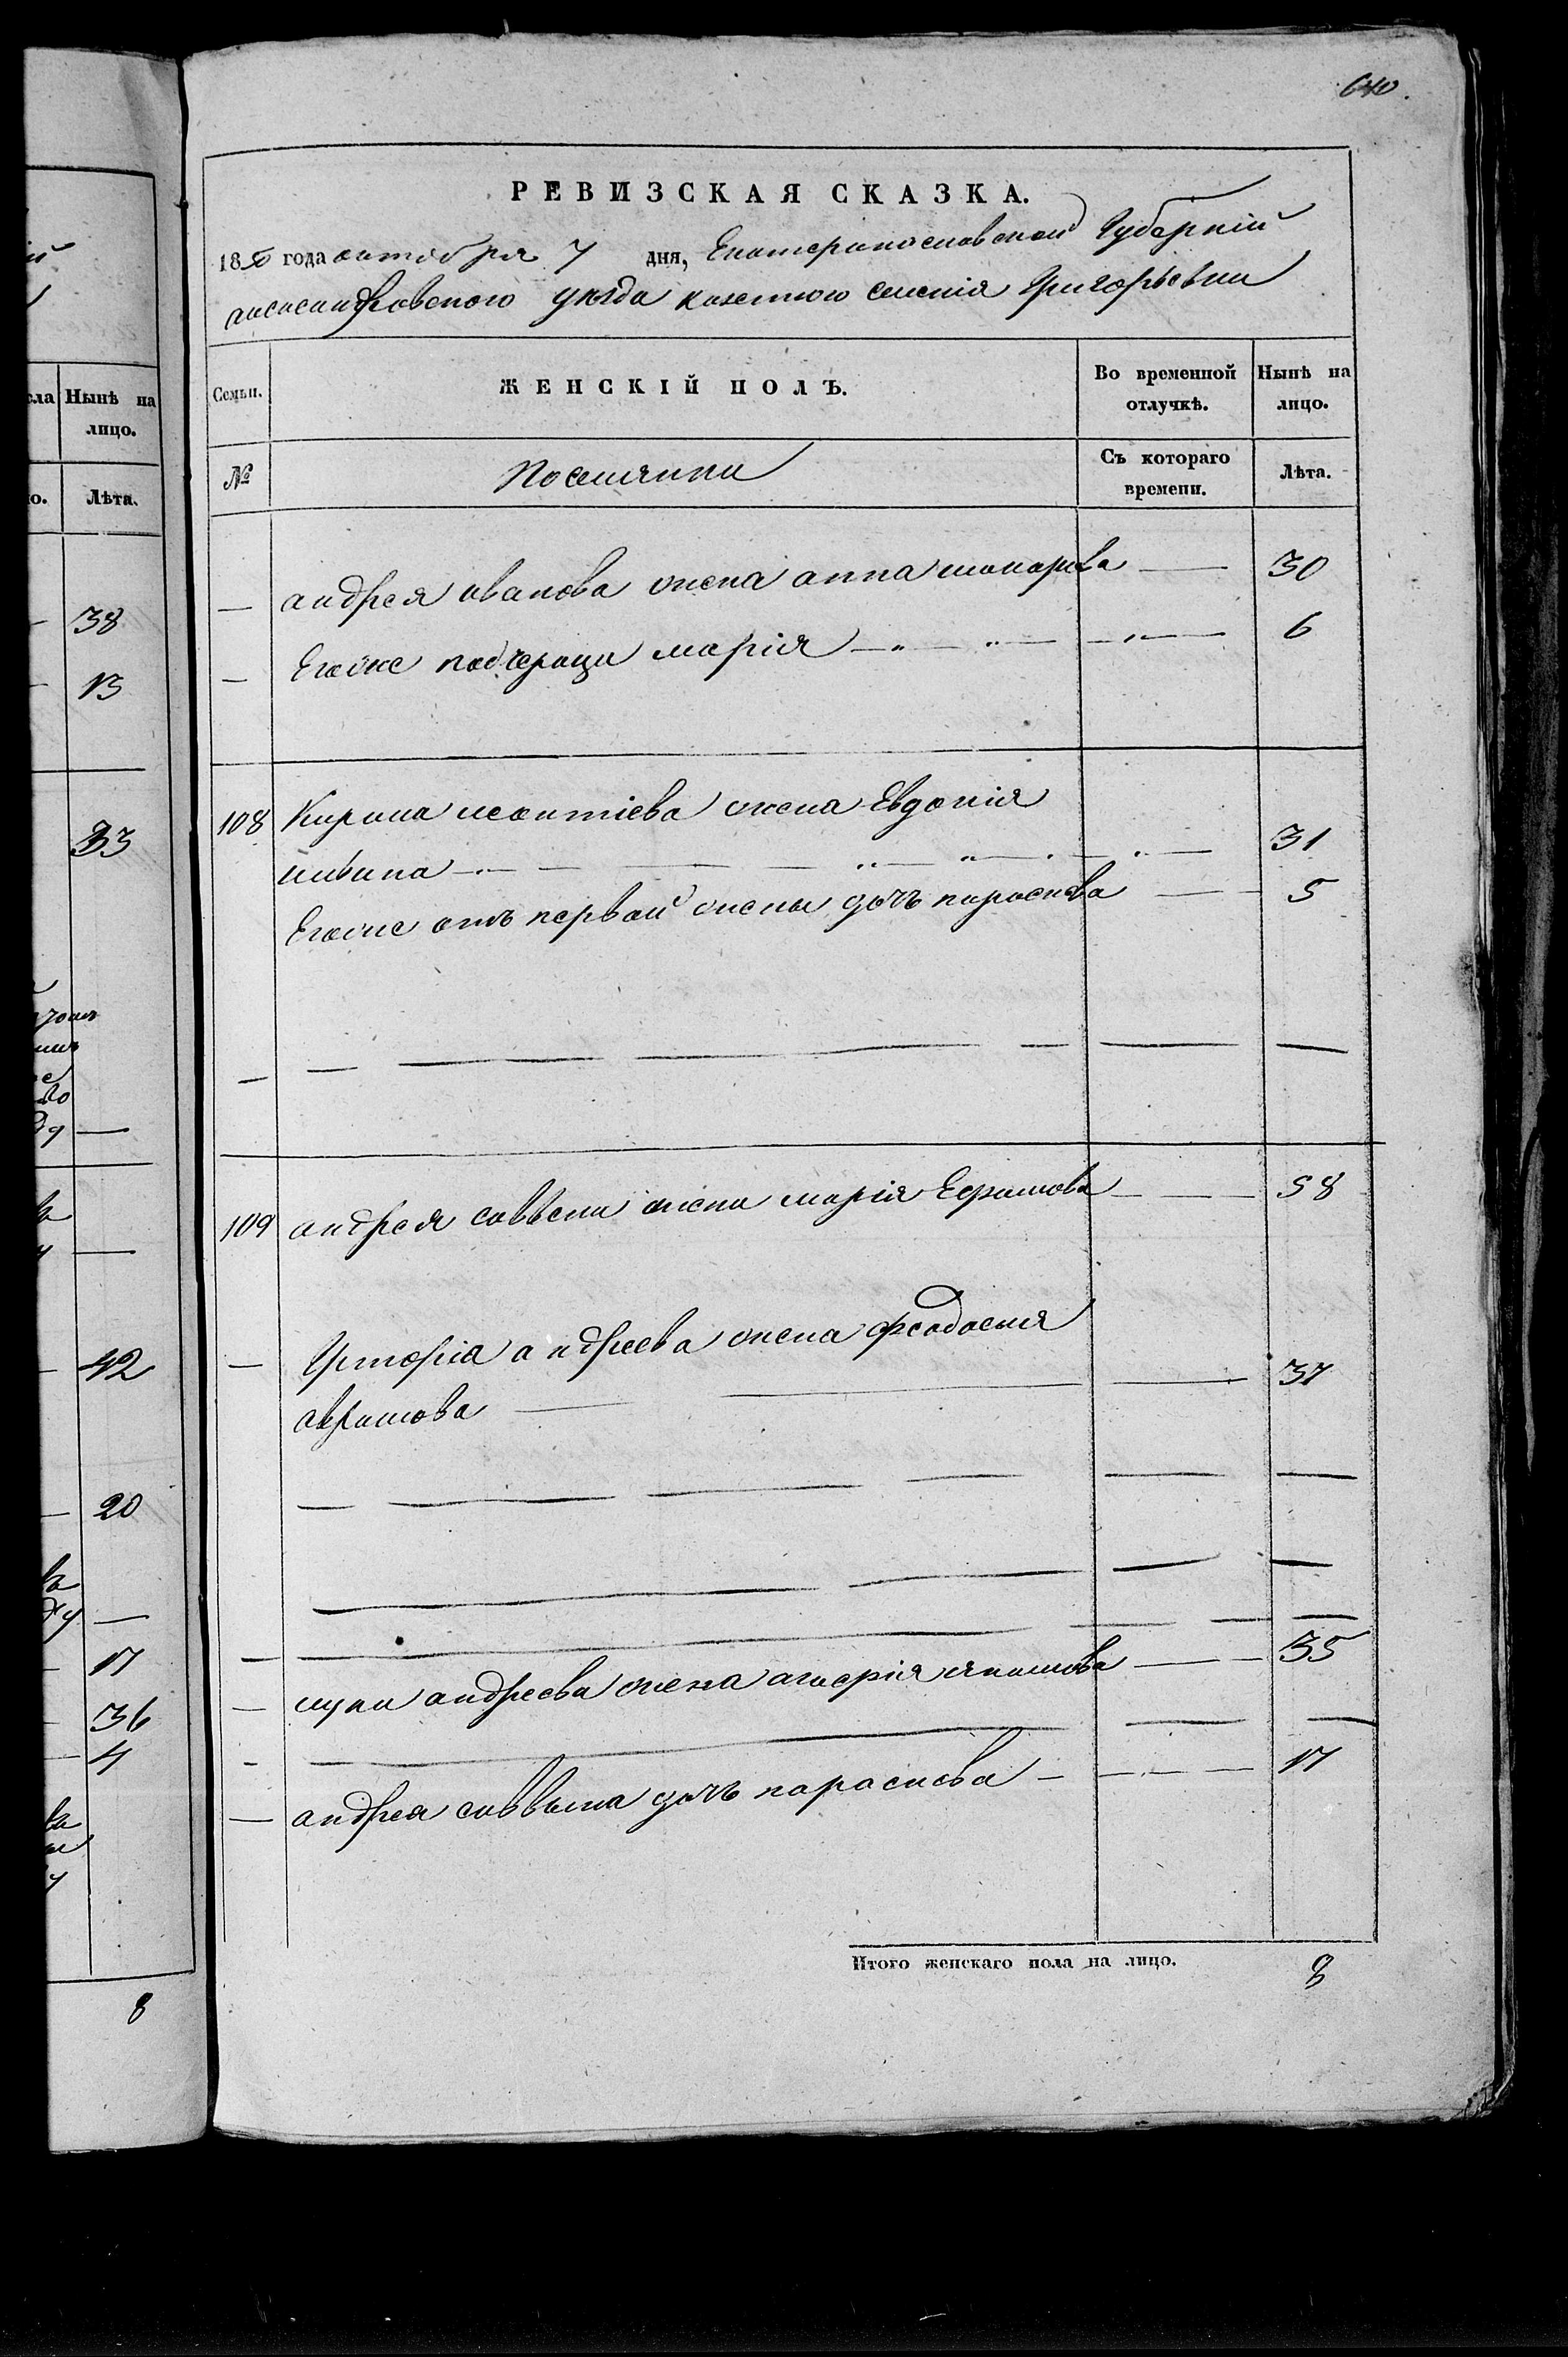 640.
РЕВИЗСКАЯ СКАЗКА.
18 года октября 7 дня, Екатеринославской Губерніи
александровского уезда казенного селенія Григорьевки
Семьи. ЖЕНСКІЙ ПОЛЪ. Во временной отлучкѣ. Нынѣ на лицо.
№ Поселянки Съ котораго времени. Лѣта.
— андрея иванова жена анна макарова — 30
— Егоже падчерица марія — 6
108 Кирила леонтіева жена Евдокія
31
Егоже отъ первой жены дочь параскева — 5
109 андрея саввена жена марія Ефимова — 58
— Григорія андреева жена феодосия
аврамова — 37
— луки андреева жена гликерія якимова — 35
— андрея саввена дочь параскева — 17
Итого женскаго пола на лицо. 8
Нынѣ на
лицо.
Лѣта.
38
13
33
42
20
17
36
4
8